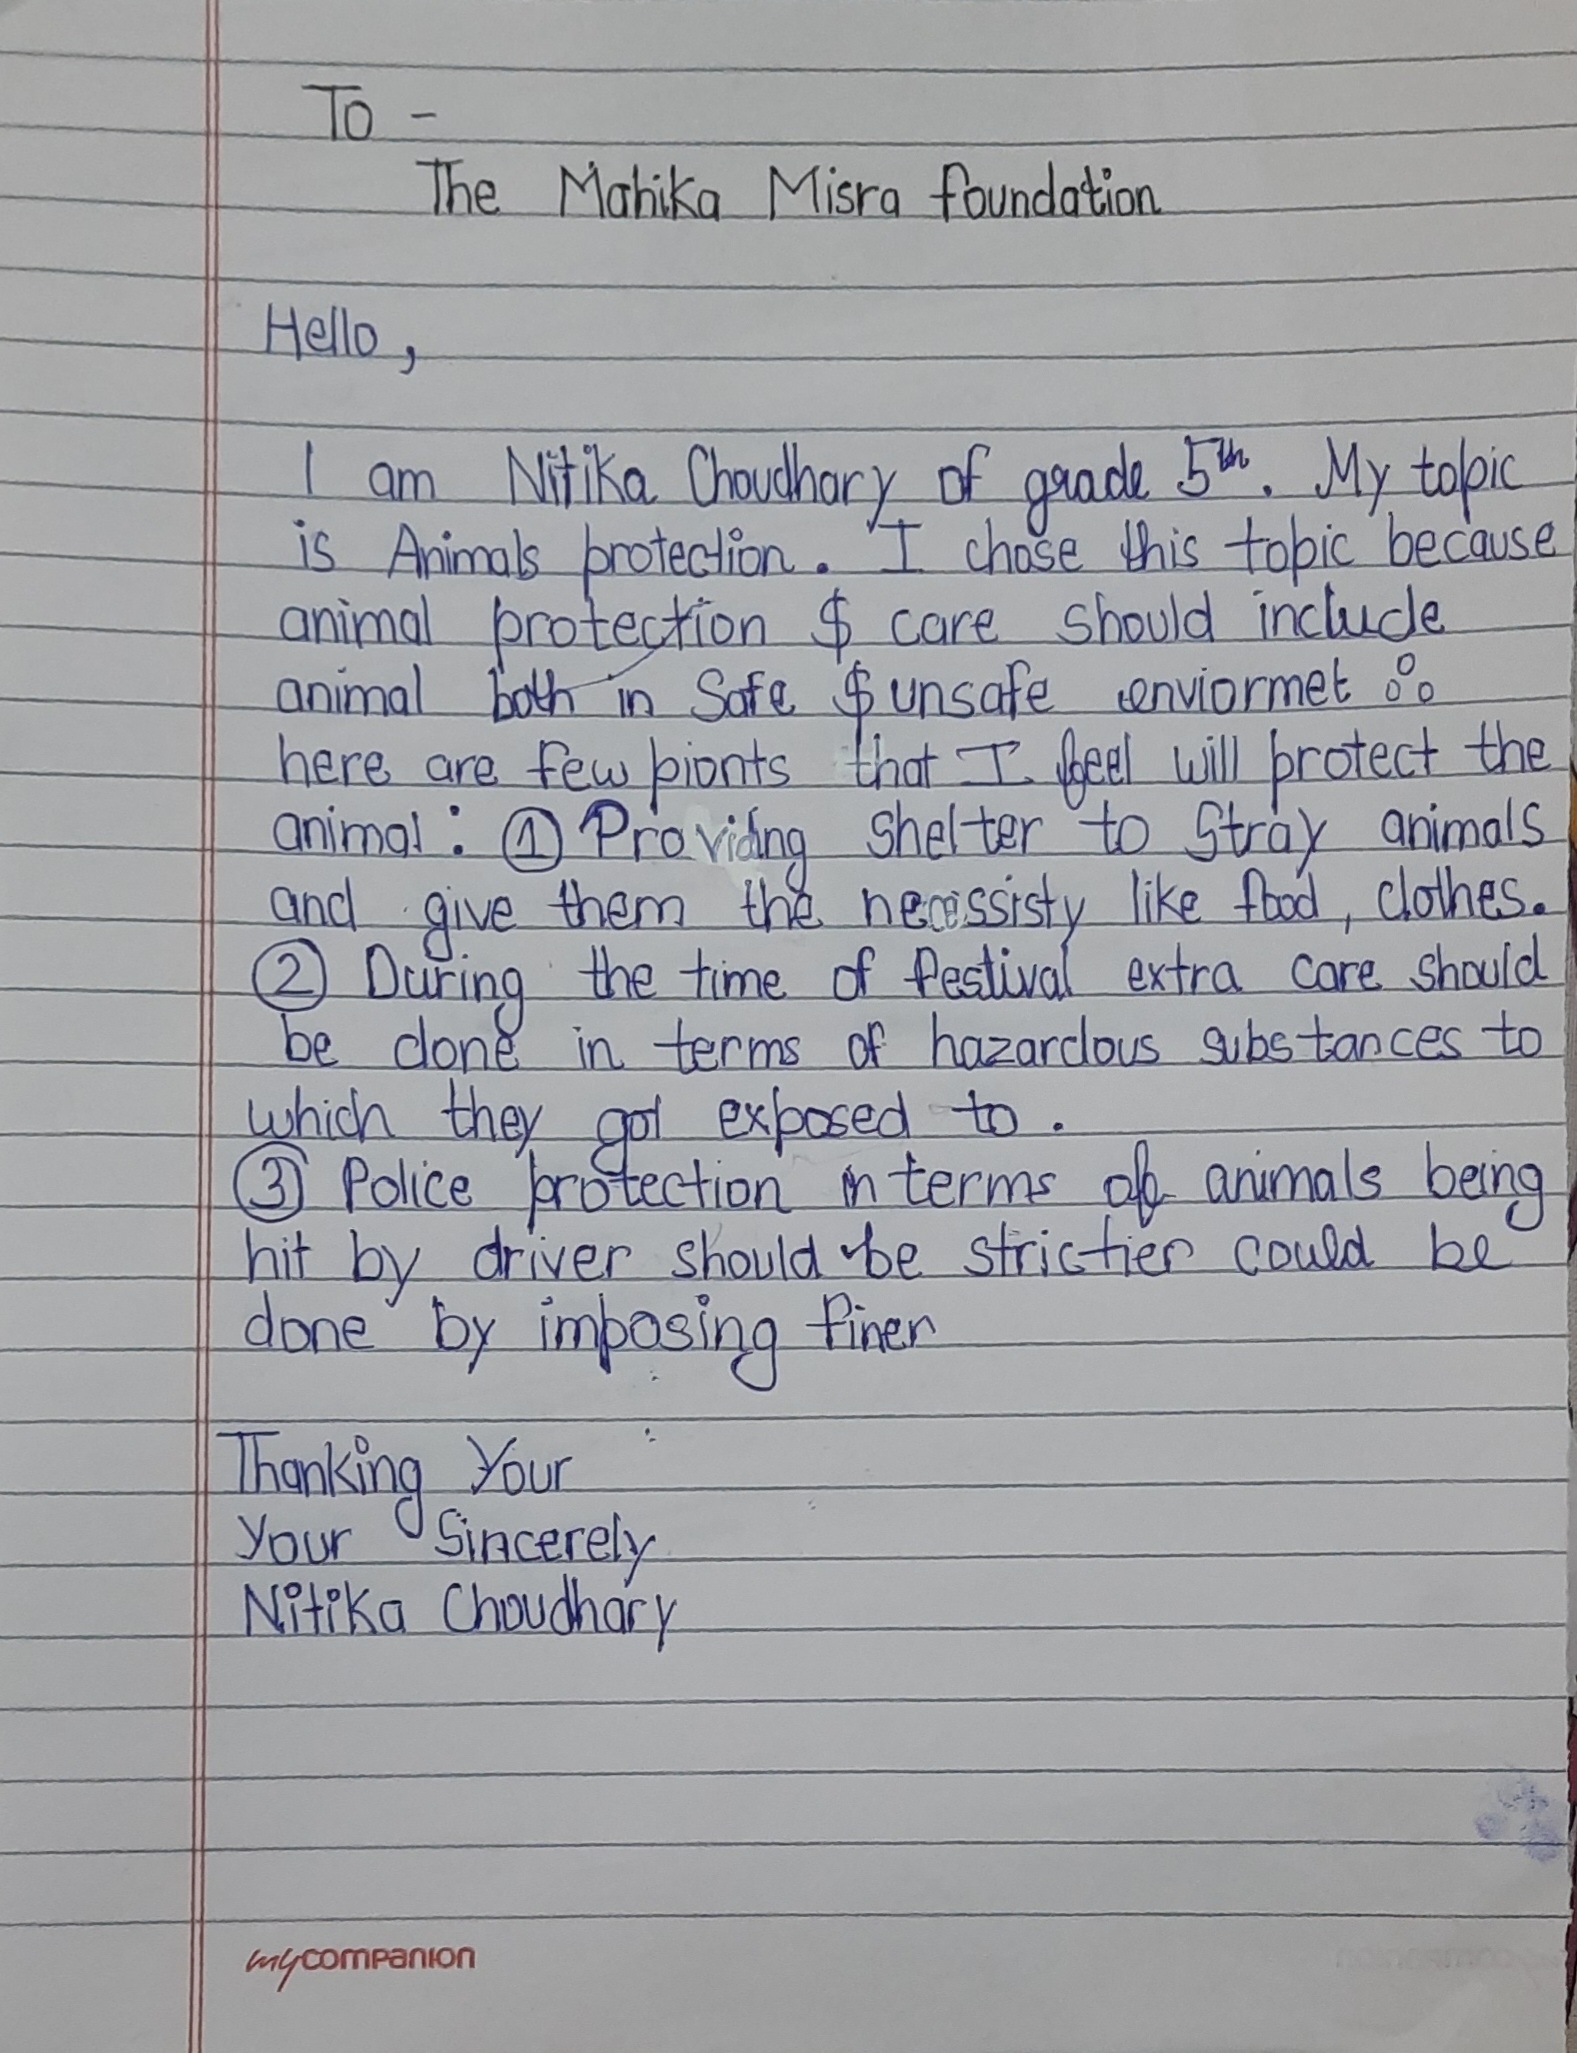 To -
The Mahika Misra foundation
Hello,
I am Nitika Choudhary of grade 5th. My topic
is Animals protection. I chose this topic because
animal protection $ care should include
animal both in Safe $ unsafe enviormet
here are few pionts that I feel will protect the
animal: ① Providing shelter to Stray animals
and give them the necessisty like food, clothes.
② During the time of festival extra care should
be done in terms of hazardous substances to
which they got exposed to.
③ Police protection in terms of animals being
hit by driver should be strictier could be
done by imposing finer
Thanking Your
Your Sincerely
Nitika Choudhary
mycompanion